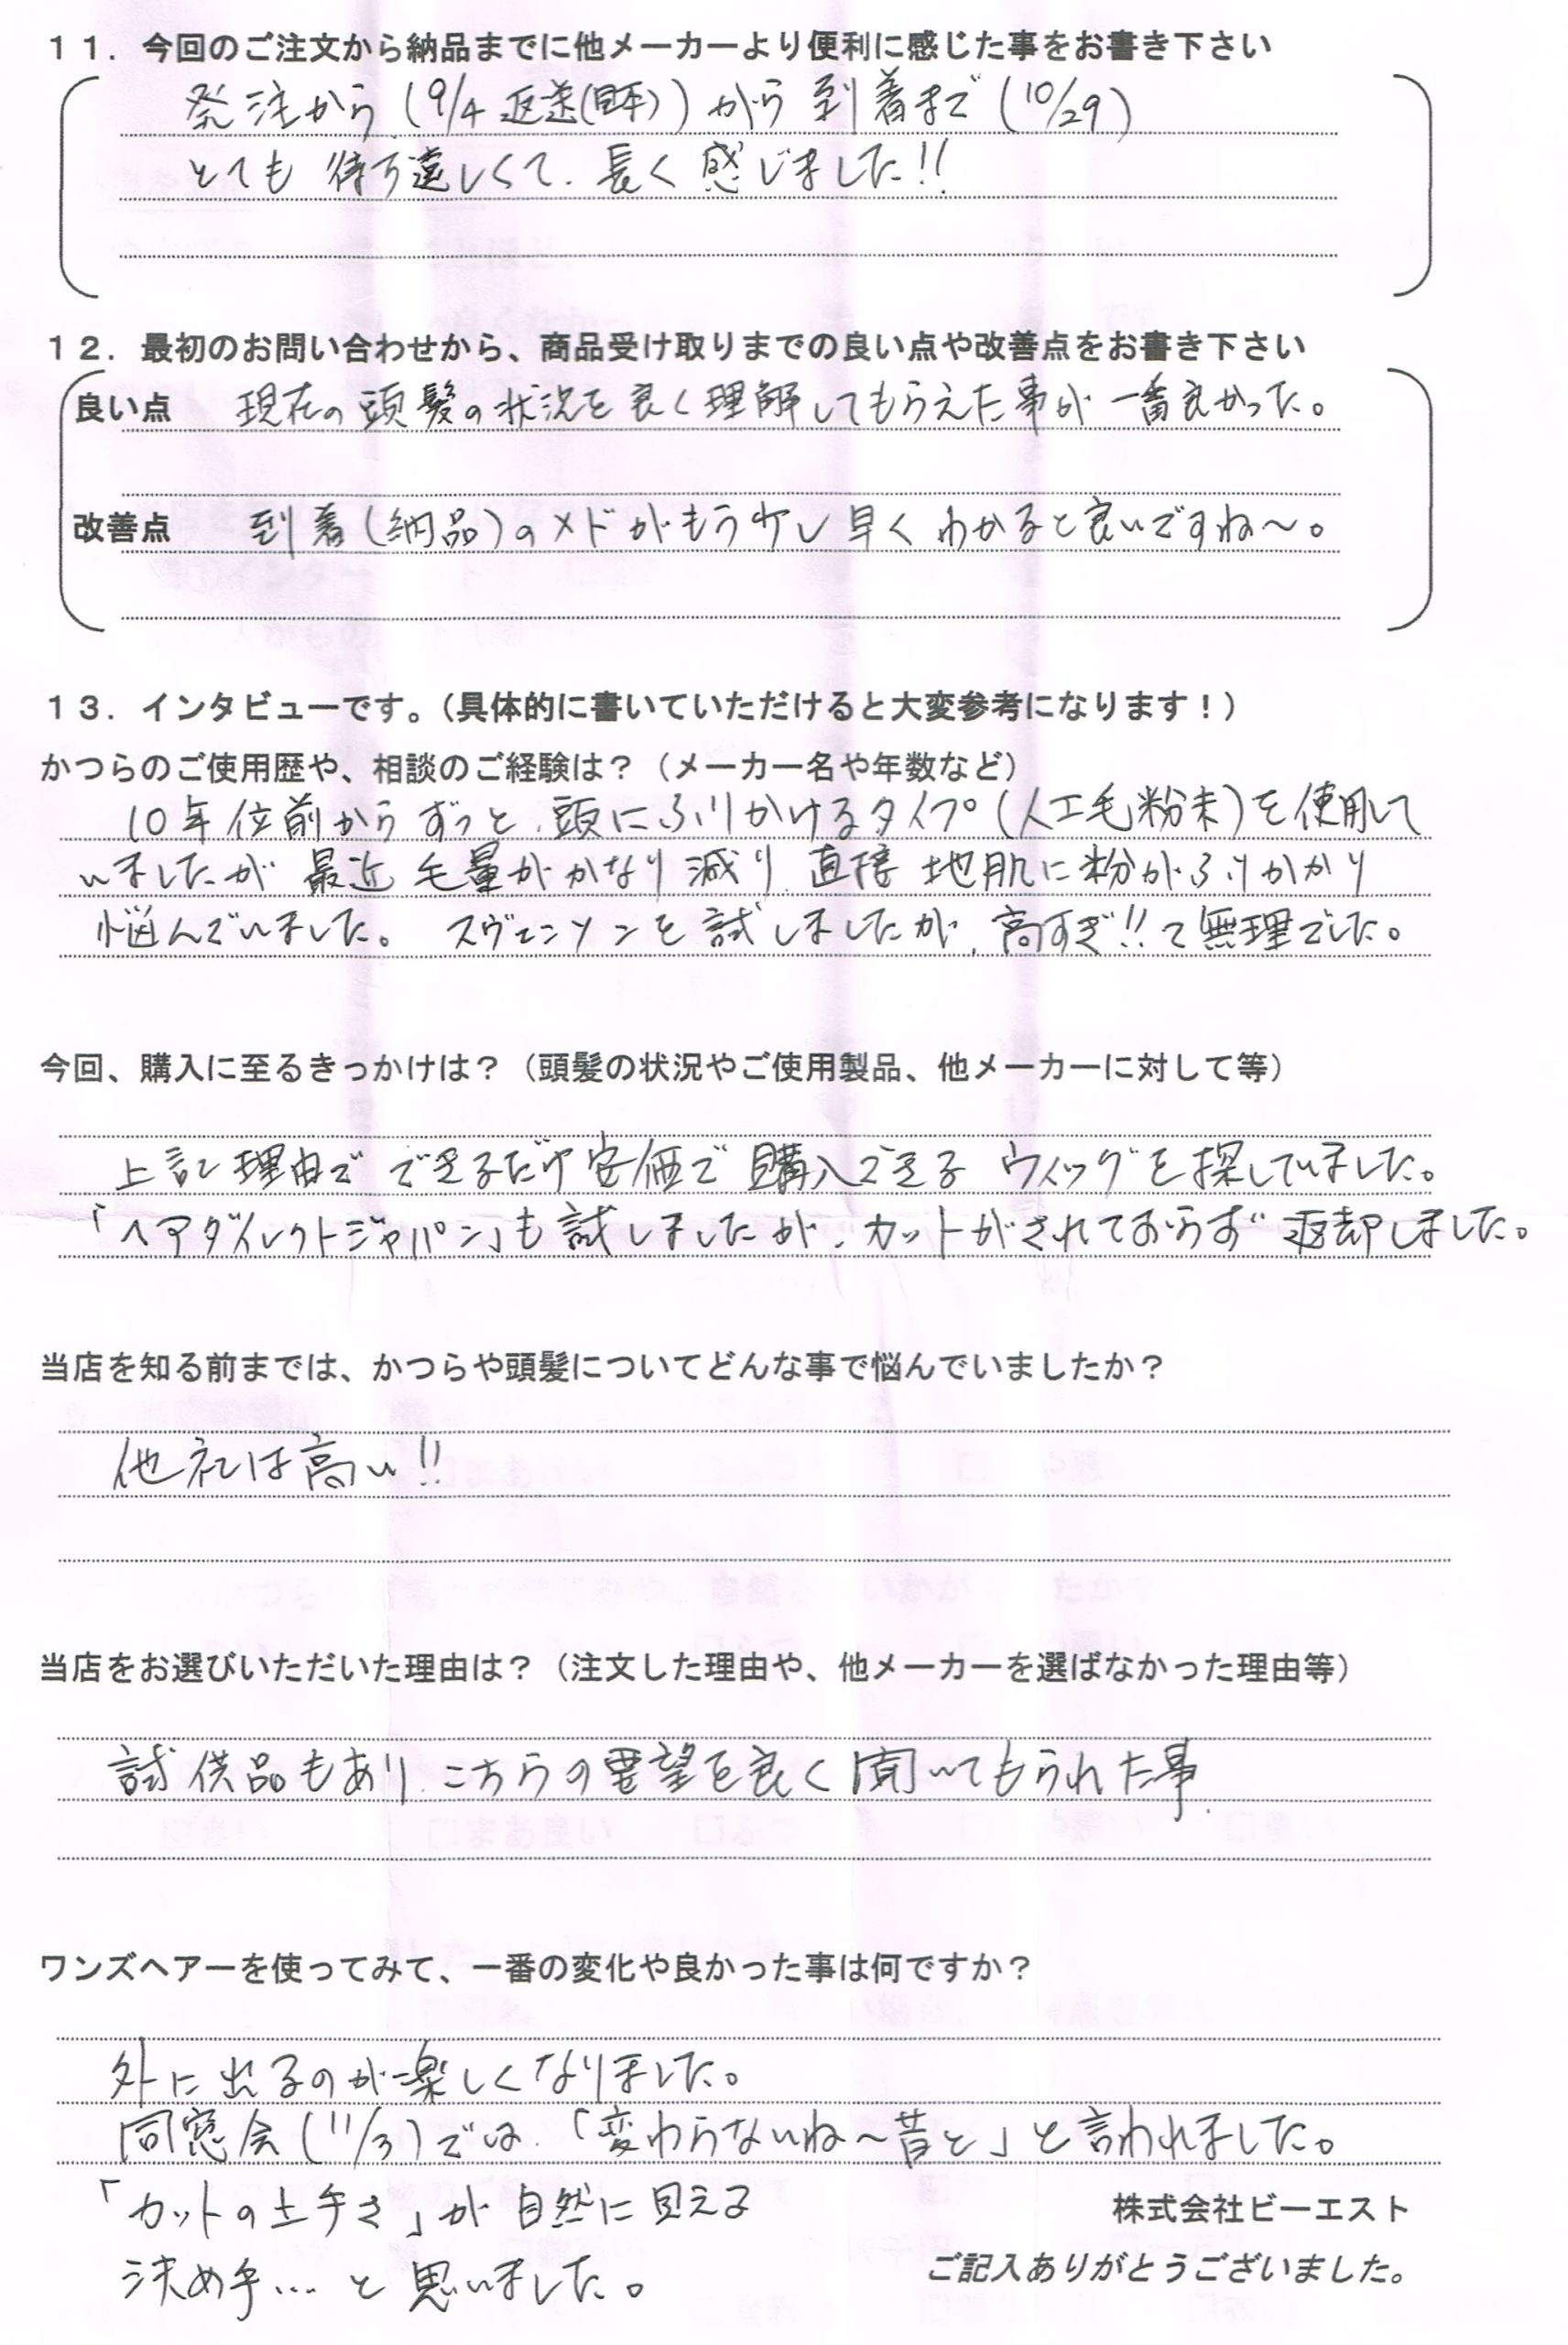 11．今回のご注文から納品までに他メーカーより便利に感じた事をお書き下さい
発注から（9/4 返送())から 到着まで（10/29）
とても 待ち遠しくて、長く 感じました!!
12．最初のお問い合わせから、商品受け取りまでの良い点や改善点をお書き下さい
良い点 現在の頭髪の状況を良く理解してもらえた事が一番良かった。
改善点 到着（納品）のメドがもう少し早くわかると良いですね～。
13．インタビューです。（具体的に書いていただけると大変参考になります！）
かつらのご使用歴や、相談のご経験は？（メーカー名や年数など）
10年位前からずっと、頭にふりかけるタイプ（人工毛粉末）を使用して
いましたが 最近 毛量がかなり減り、直接 地肌に粉がふりかかり
悩んでいました。 スヴェンソンを試しましたが、高すぎ!!て無理でした。
今回、購入に至るきっかけは？（頭髪の状況やご使用製品、他メーカーに対して等）
上記理由で できるだけ安価で購入できる ウィッグを探していました。
「ヘアダイレクトジャパン」も試しましたが、カットがされておらず 返却しました。
当店を知る前までは、かつらや頭髪についてどんな事で悩んでいましたか？
他社は高い!!
当店をお選びいただいた理由は？（注文した理由や、他メーカーを選ばなかった理由等）
試供品もあり、こちらの要望を良く聞いてもられた事.
ワンズヘアーを使ってみて、一番の変化や良かった事は何ですか？
外に出るのが楽しくなりました。
同窓会（11/3）では、「変わらないね～昔と」と言われました。
「カットの上手さ」が自然に見える
決め手…と思いました。
株式会社ビーエスト
ご記入ありがとうございました。